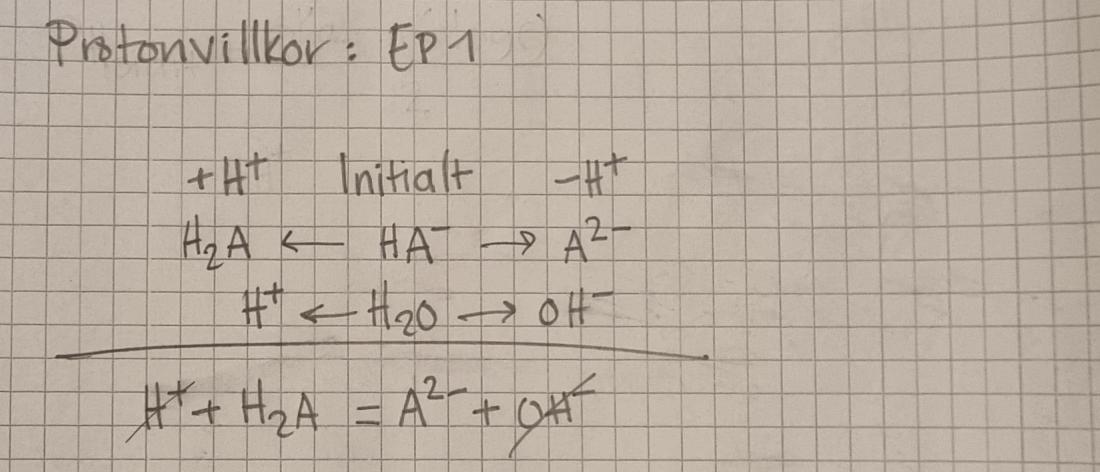 Protonvillkor: EP1
+H⁺ Initialt −H⁺
H₂A ← HA⁻ → A²⁻
H⁺ ← H₂O → OH⁻
H⁺ + H₂A = A²⁻ + OH⁻